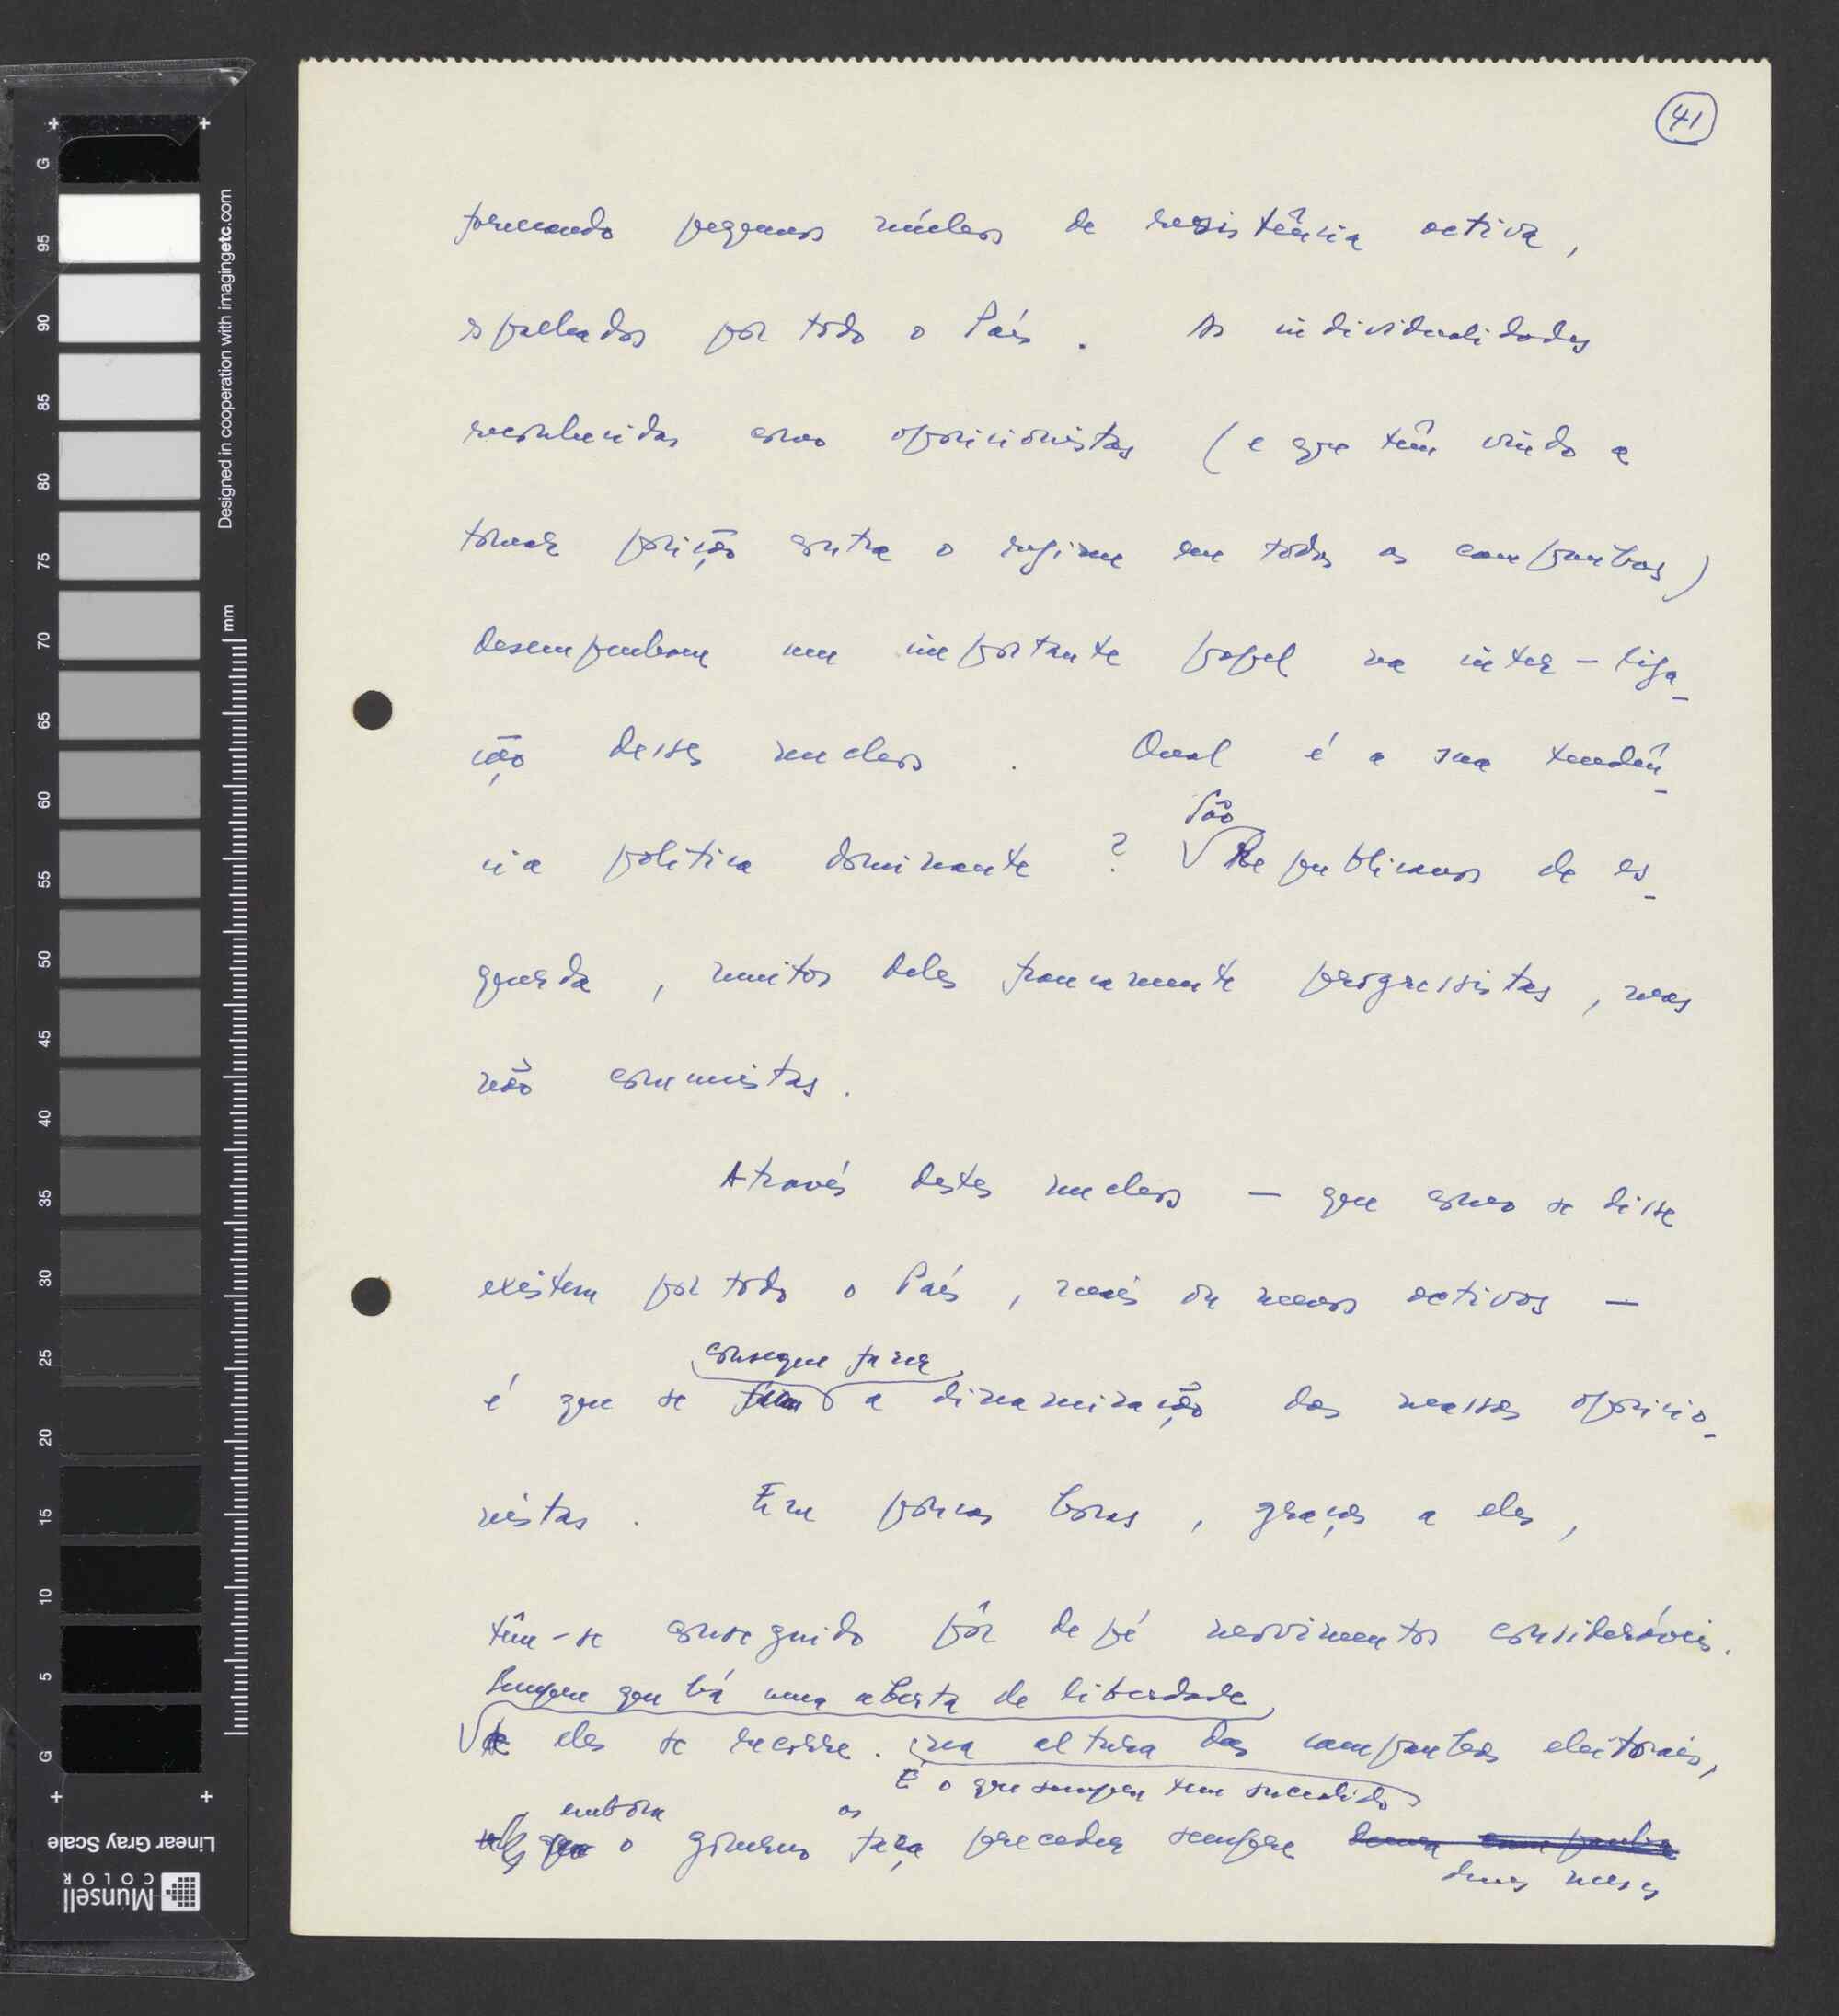 41
formando pequenos núcleos de resistência activa,
espalhados por todo o País. As individualidades
reconhecidas como oposicionistas (e que têm vindo a
tomar posição contra o regime em todos os campanhas)
desempenham um importante papel na inter-liga-
ção desses nucleos. Qual é a sua tendên-
São
cia politica dominante? Republicanos de es-
querda, muitos deles francamente progressistas, mas
não comunistas.
Através destes nucleos — que como se disse
existem por todo o País, mais ou menos activos —
consegue fazer
é que se a dinamização das massas oposicio-
nistas. Em poucas horas, graças a eles,
têm-se conseguido pôr de pé movimentos consideráveis.
Sempre que há uma aberta de liberdade
a eles se recorre. na altura das campanhas eleitorais,
É o que sempre tem sucedido
embora as
o governo faça preceder sempre
duns meses
G 95 90 85 80 75 70 65 60 55 50 45 40 35 30 25 20 15 10 5 G
Designed in cooperation with imagingetc.com
mm
Linear Gray Scale
Munsell
COLOR